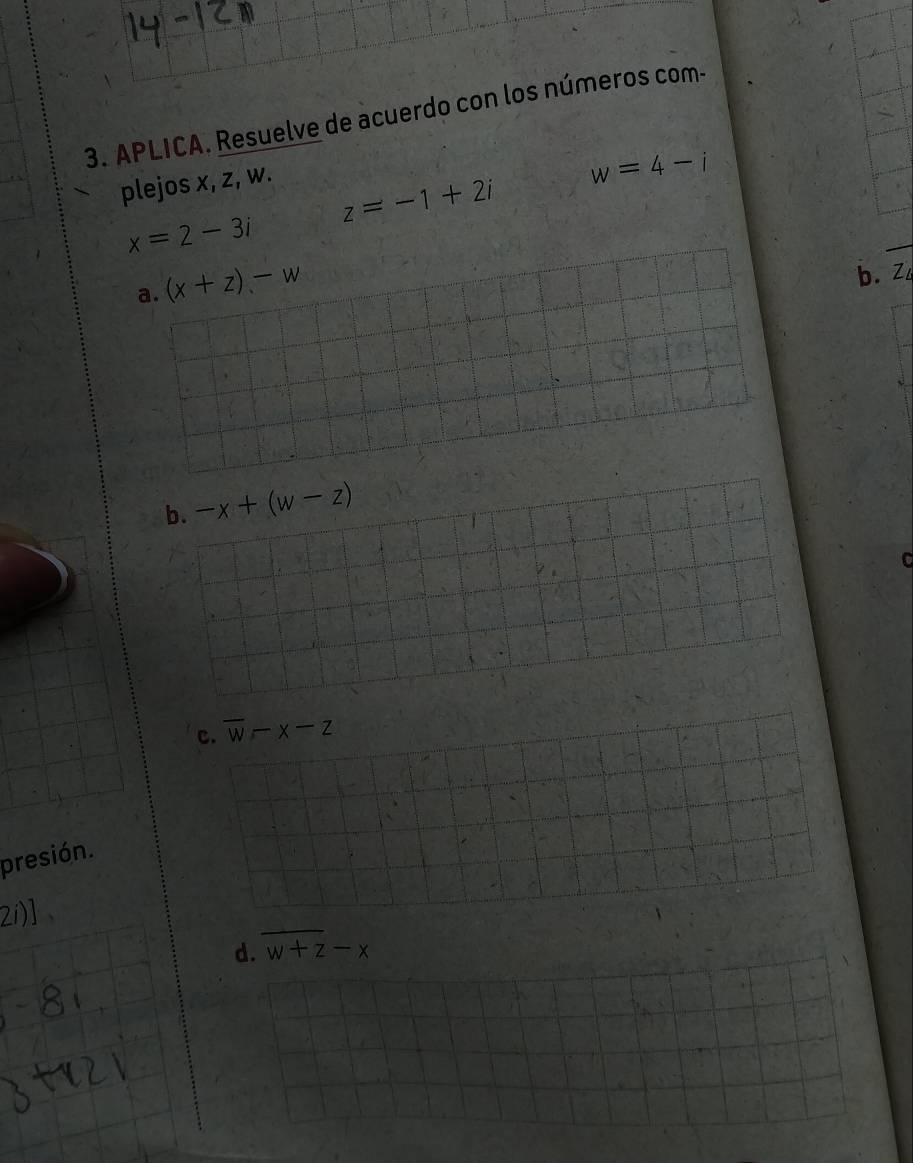 14-12
3. APLICA. Resuelve de acuerdo con los números com-
plejos x, z, w.
x = 2 − 3i z = −1 + 2i w = 4 − i
a. (x + z) − w
b. −x + (w − z)
c. w̅ − x − z
d. w̅ ̅+̅ ̅z̅ − x
presión.
2i)]
-8i
b.